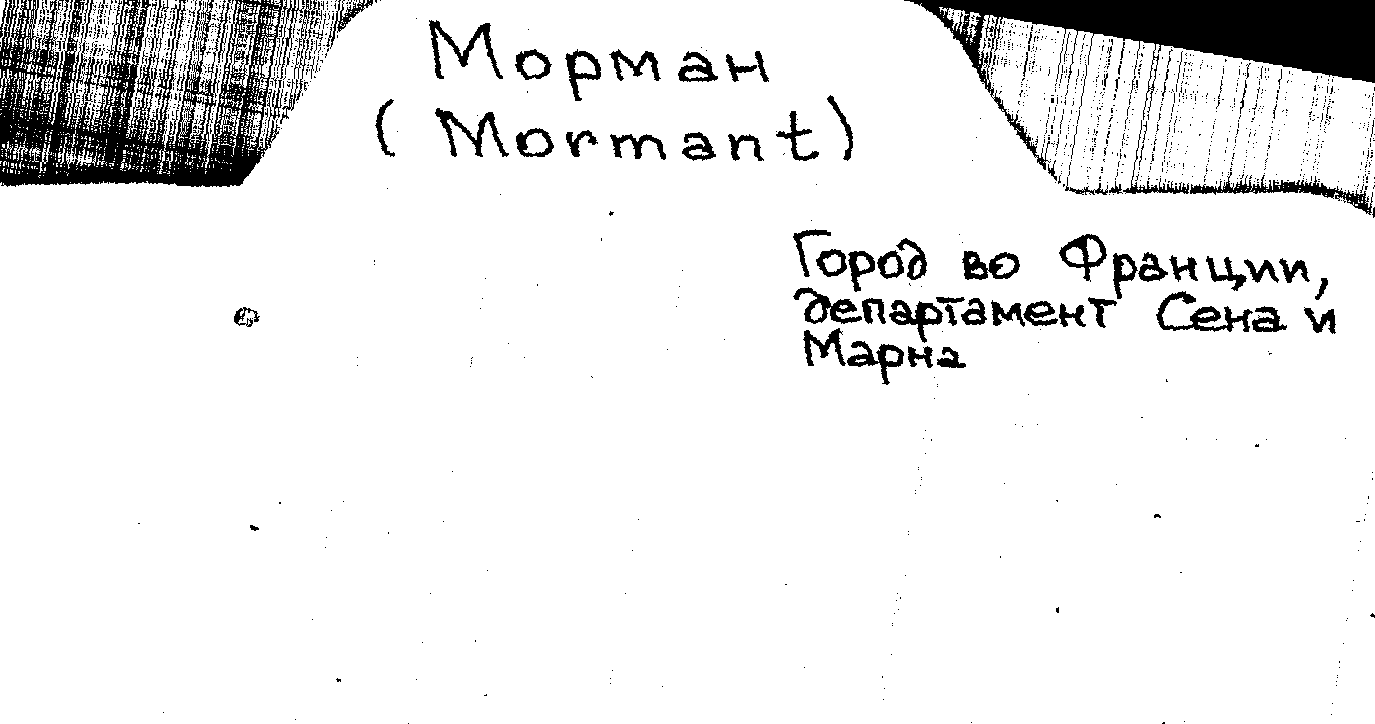 Морман
(Mormant)
Город во Франции,
департамент Сена и
Марна